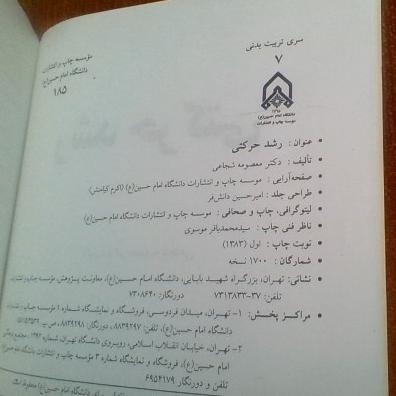 سری تربیت بدنی
۷
مؤسسه چاپ و انتشارات
دانشگاه امام حسین(ع)
۱۸۵
دانشگاه امام حسین(ع)
موسسه چاپ و انتشارات
عنوان : رشد حرکتی
تألیف : دکتر معصومه شجاعی
صفحه‌آرایی : موسسه چاپ و انتشارات دانشگاه امام حسین(ع) (اکرم کیامنش)
طراحی جلد : امیرحسین دانش‌فر
لیتوگرافی، چاپ و صحافی : موسسه چاپ و انتشارات دانشگاه امام حسین(ع)
ناظر فنی چاپ : سیدمحمدباقر موسوی
نوبت چاپ : اول (۱۳۸۳)
شمارگان : ۱۷۰۰ نسخه
نشانی: تهران، بزرگراه شهید بابایی، دانشگاه امام حسین(ع)، معاونت پژوهش، مؤسسه چاپ و انتشارات
تلفن: ۳۷-۷۳۱۳۸۳۳ دورنگار: ۷۳۰۸۶۴۰
مراکز پخش: ۱- تهران، میدان فردوسی، فروشگاه و نمایشگاه شماره ۱ مؤسسه چاپ و انتشارات
دانشگاه امام حسین(ع)، تلفن: ۸۸۳۹۲۹۷، دورنگار: ۸۸۳۹۲۹۸،
۲- تهران، خیابان انقلاب اسلامی، روبروی دانشگاه تهران، شماره
امام حسین(ع)، فروشگاه و نمایشگاه شماره ۲ مؤسسه چاپ و انتشارات دانشگاه امام حسین(ع)
تلفن و دورنگار : ۶۹۵۴۱۷۹
برای دانشگاه امام حسین(ع) محفوظ است